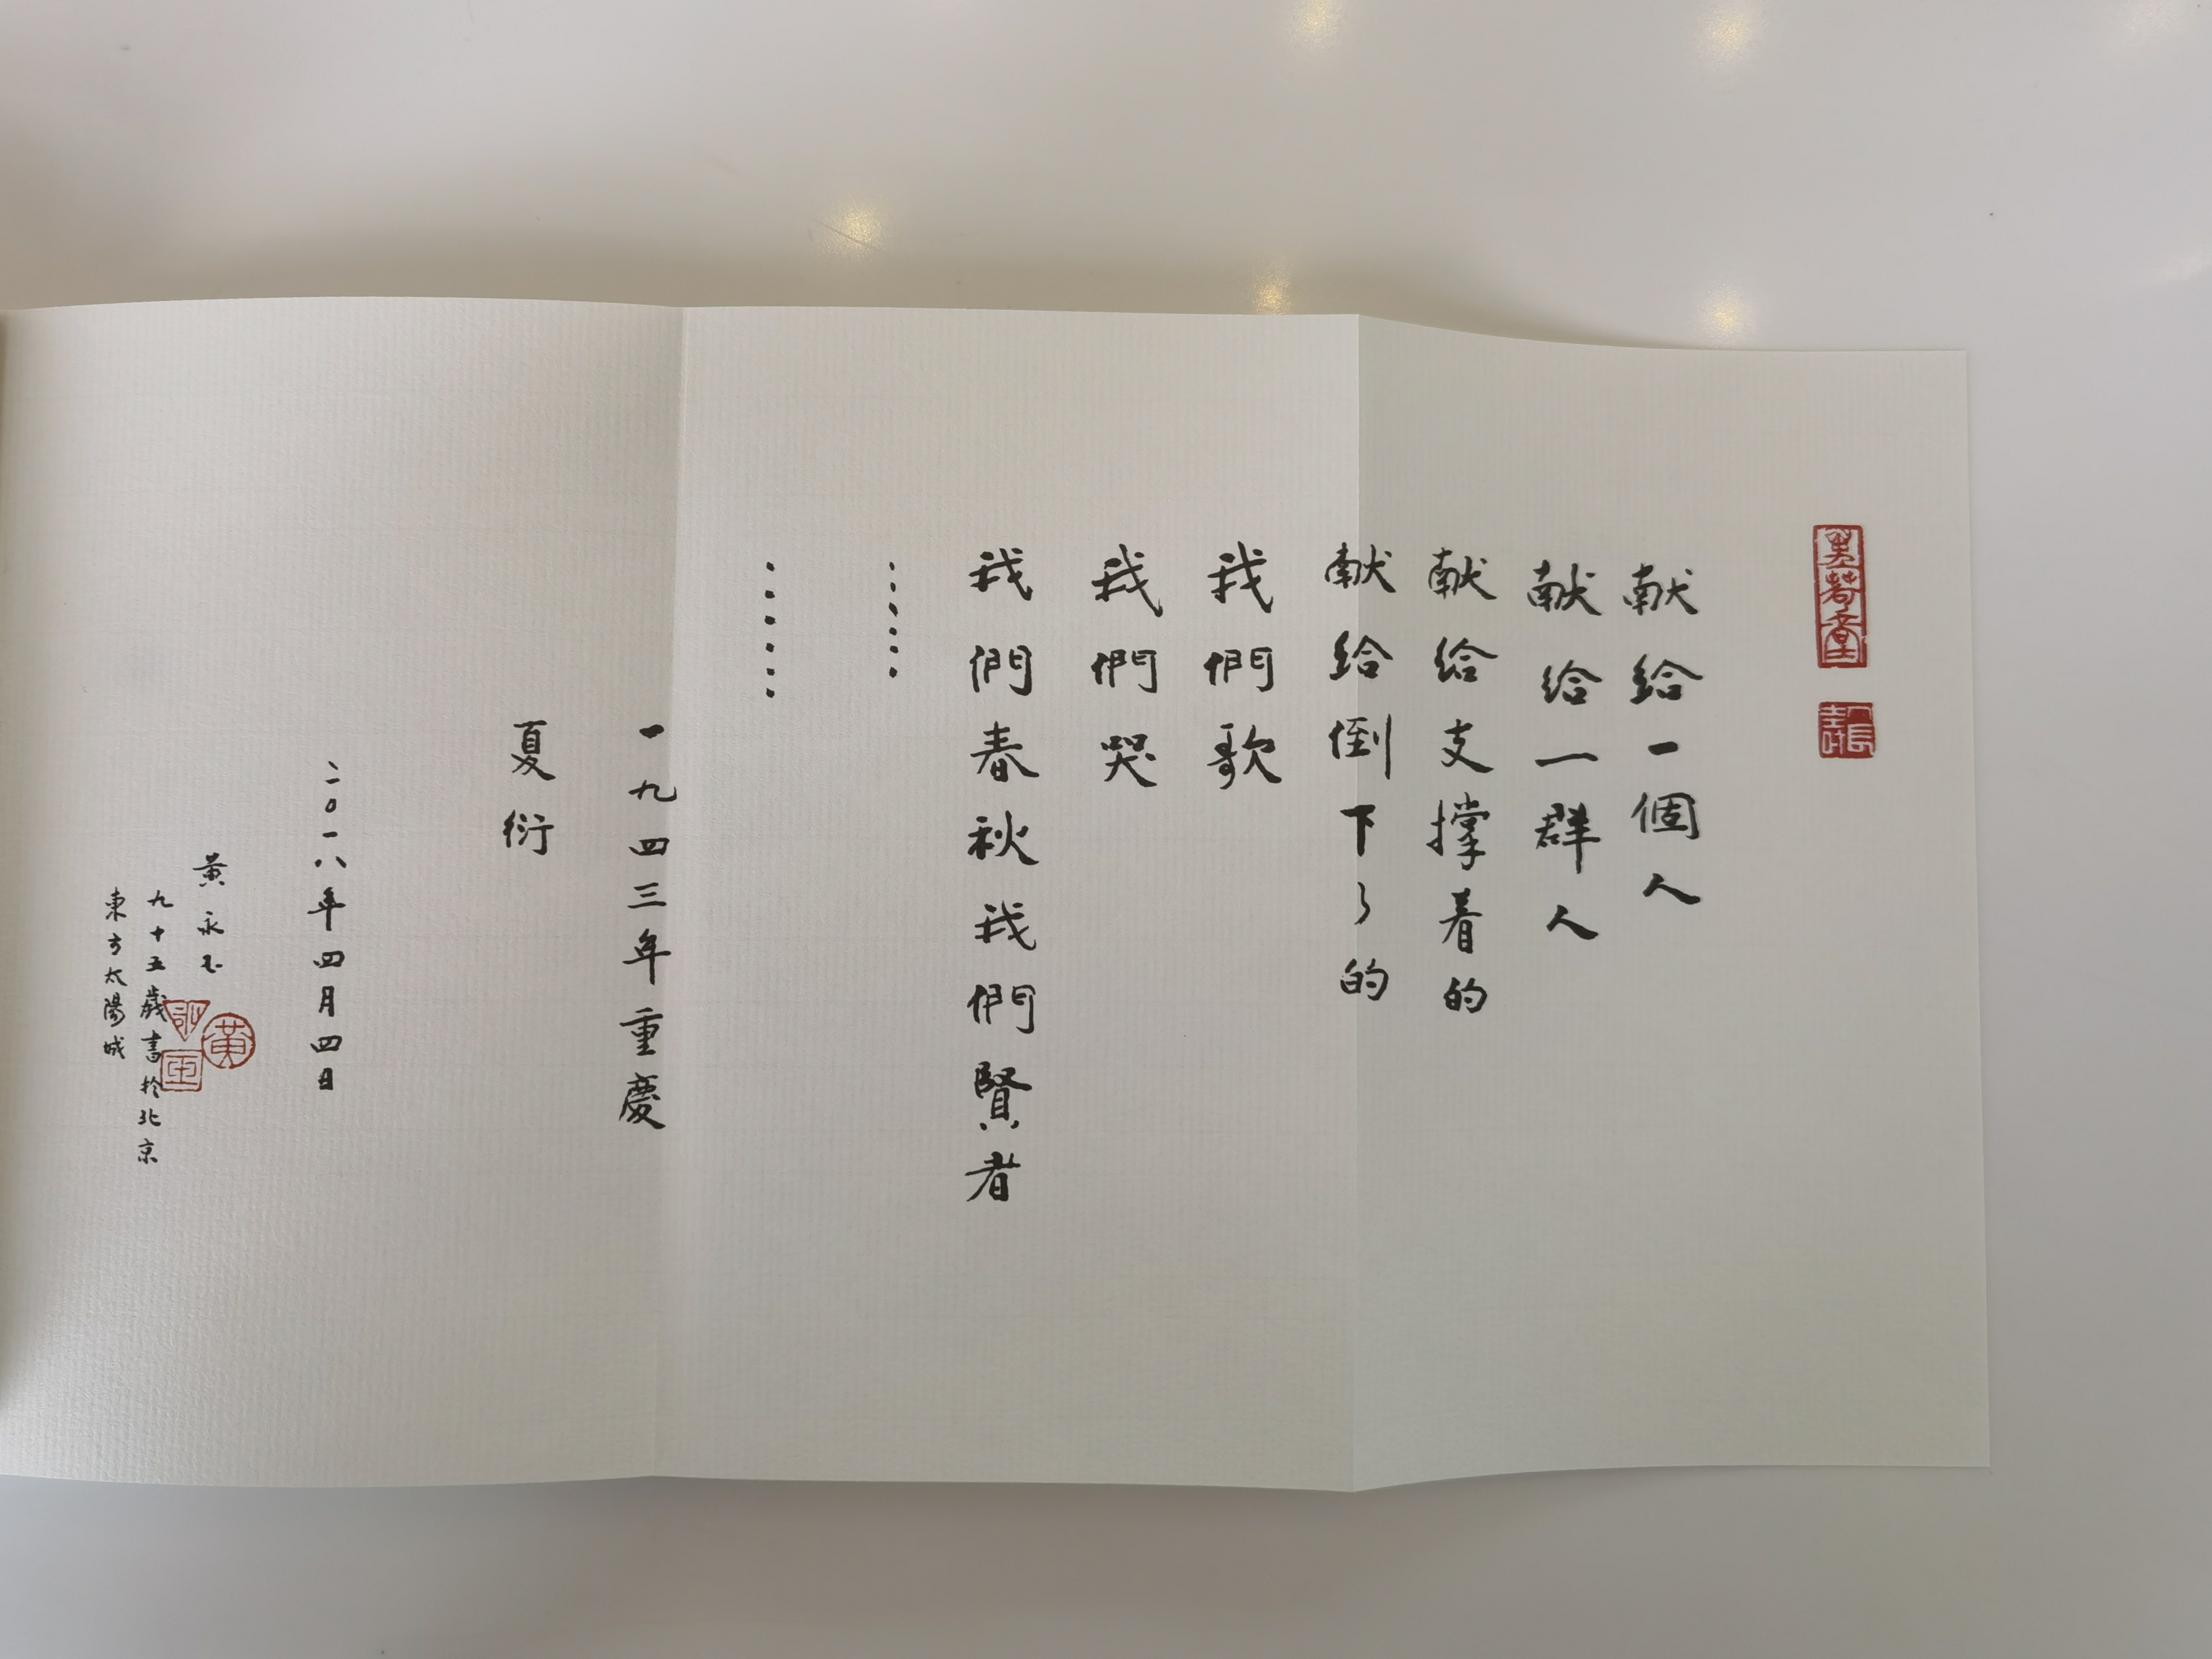 献給一個人
献給一群人
献給支撑着的
献給倒下了的
我們歌
我們哭
我們春秋我們賢者
……
……
一九四三年重慶
夏衍
二〇一八年四月四日
黃永玉
九十五歲書於北京
東方太陽城
黃
永
玉